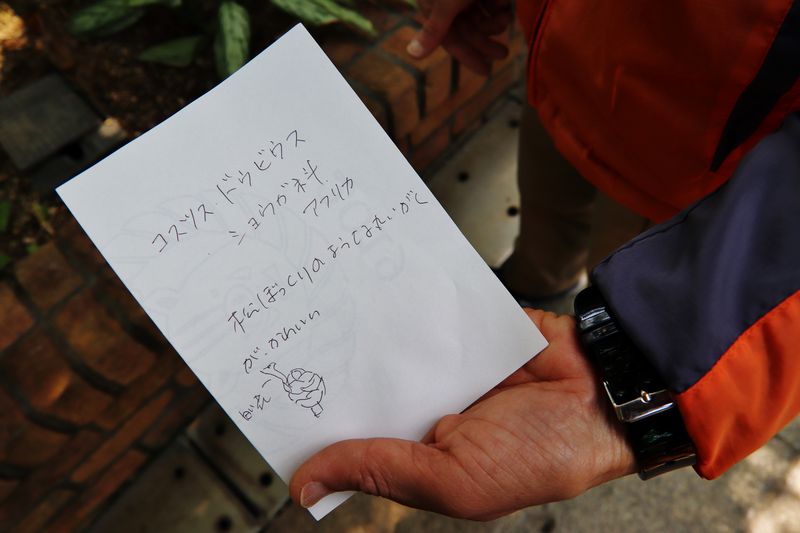 コズツス・ドゥビウス
ショウガ科
アフリカ
松ぼっくりのようてみたいがく
が、かわいい
白花